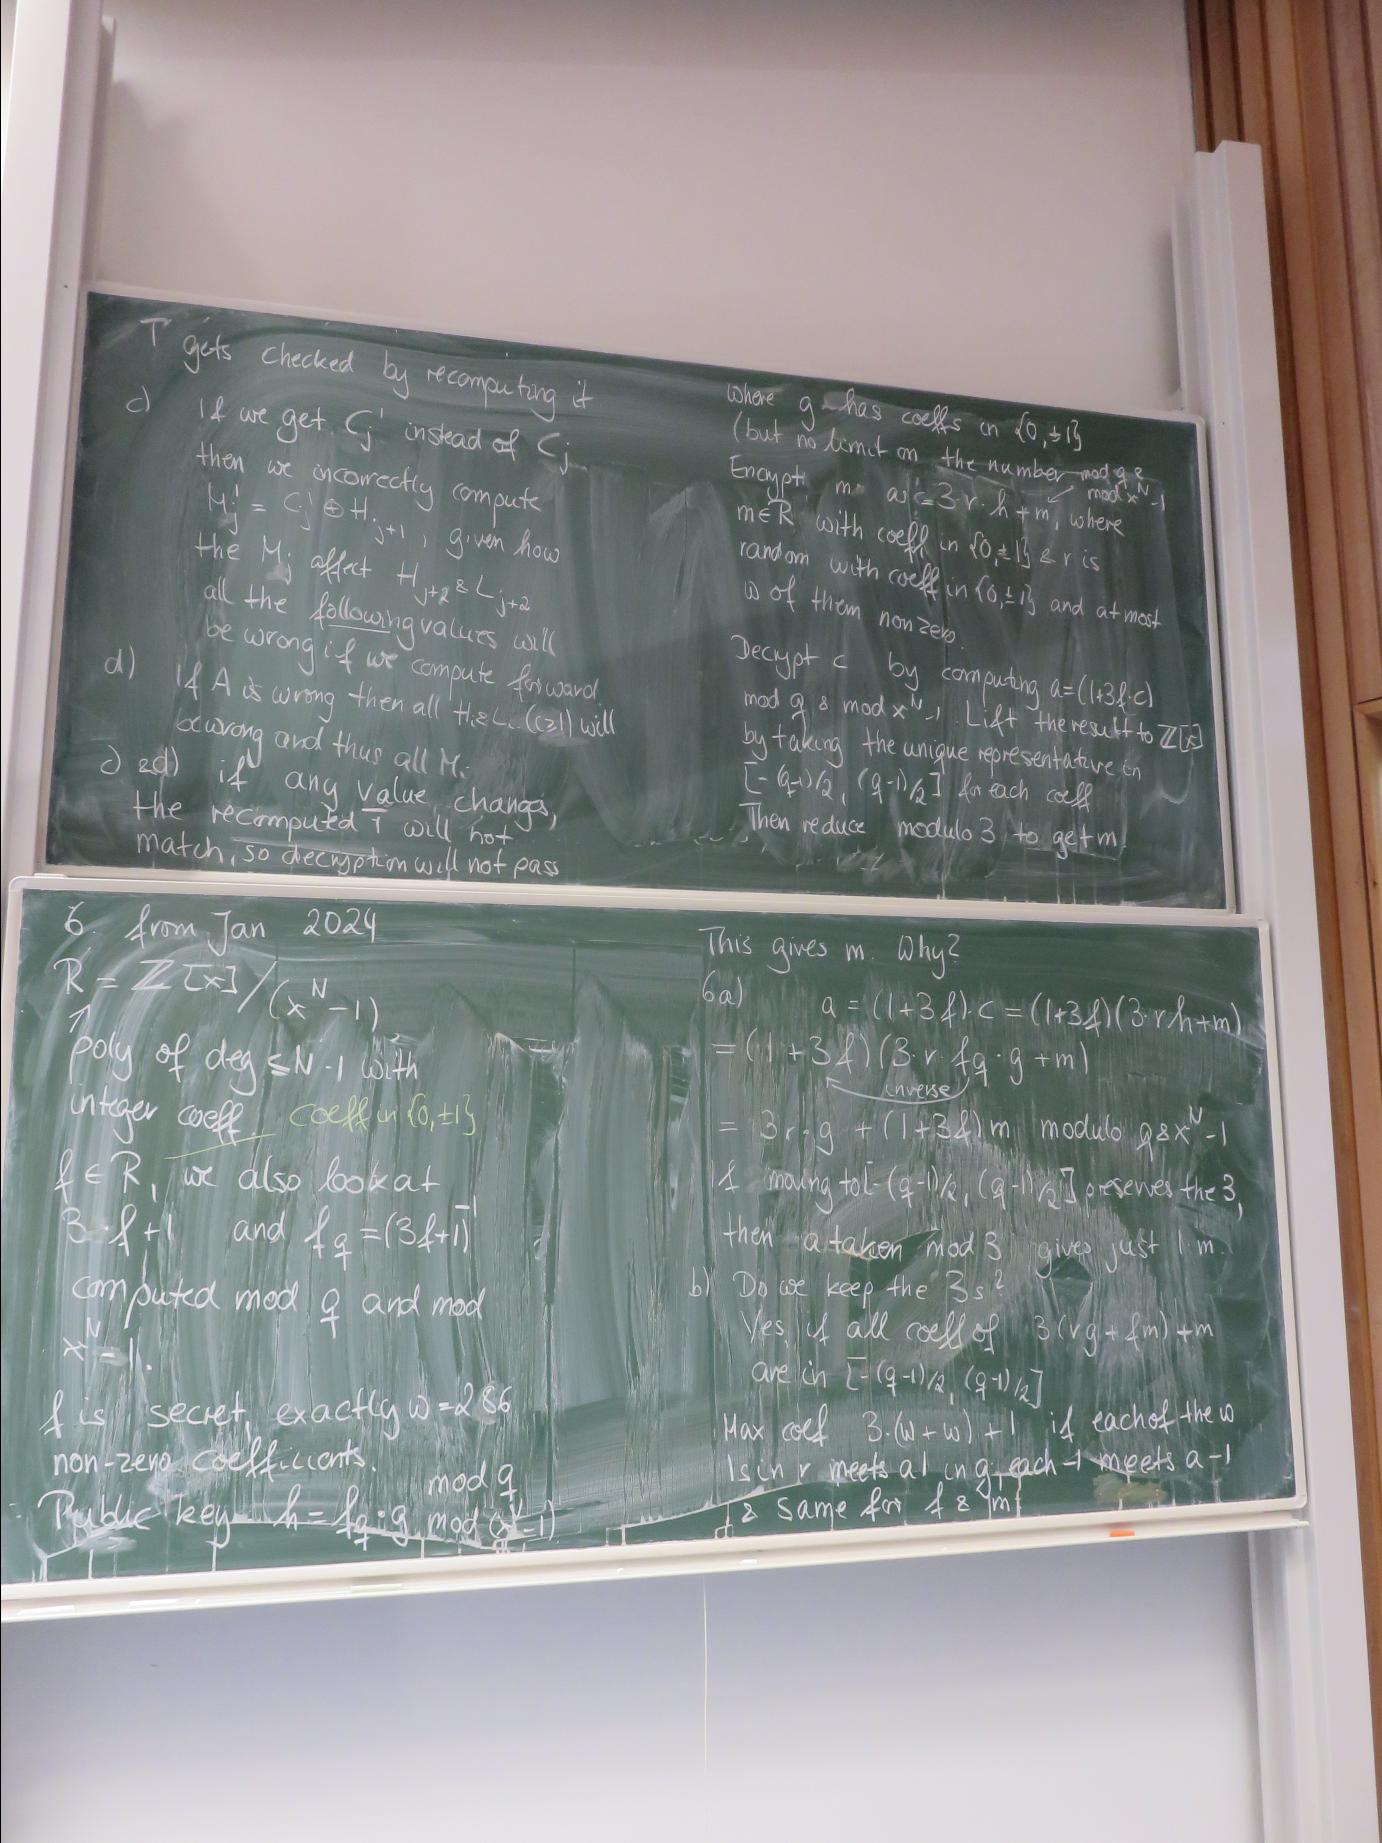 T gets checked by recomputing it
c) If we get C'j instead of Cj
then we incorrectly compute
M'j = C'j ⊕ Hj+1, given how
the Mj affect Hj+2 & Lj+2
all the following values will
be wrong if we compute forward
d) If A is wrong then all Hi & Li (i≥1) will
be wrong and thus all Mi
c) & d) if any value changes,
the recomputed T will not
match, so decryption will not pass
where g has coeffs in {0,±1}
(but no limit on the number mod q &
Encrypt m as c=3·r·h+m, where mod x^N-1
m∈R with coeff in {0,±1} & r is
random with coeff in {0,±1} and at most
w of them nonzero.
Decrypt c by computing a=(1+3f·c)
mod q & mod x^N-1. Lift the result to ℤ[x]
by taking the unique representative in
[-(q-1)/2, (q-1)/2] for each coeff
Then reduce modulo 3 to get m
6 from Jan 2024
R = ℤ[x]/(x^N-1)
↑
poly of deg ≤N-1 with
integer coeff coeff in {0,±1}
f∈R, we also look at
3·f+1 and fq=(3f+1)^-1
computed mod q and mod
x^N-1.
f is secret, exactly w=286
non-zero coefficients.
Public key h=fq·g mod q mod (x^N-1)
This gives m. Why?
6a) a = (1+3f)·c = (1+3f)(3·r·h+m)
= (1+3f)(3·r·fq·g+m)
inverse
= 3r·g + (1+3f)m modulo q&x^N-1
If moving to [-(q-1)/2, (q-1)/2] preserves the 3,
then a taken mod 3 gives just 1·m.
b) Do we keep the 3s?
Yes, if all coeff of 3(rg+fm)+m
are in [-(q-1)/2, (q-1)/2]
Max coef 3·(w+w)+1 if each of the w
1s in r meets a 1 in g, each -1 meets a -1
& same for f & m